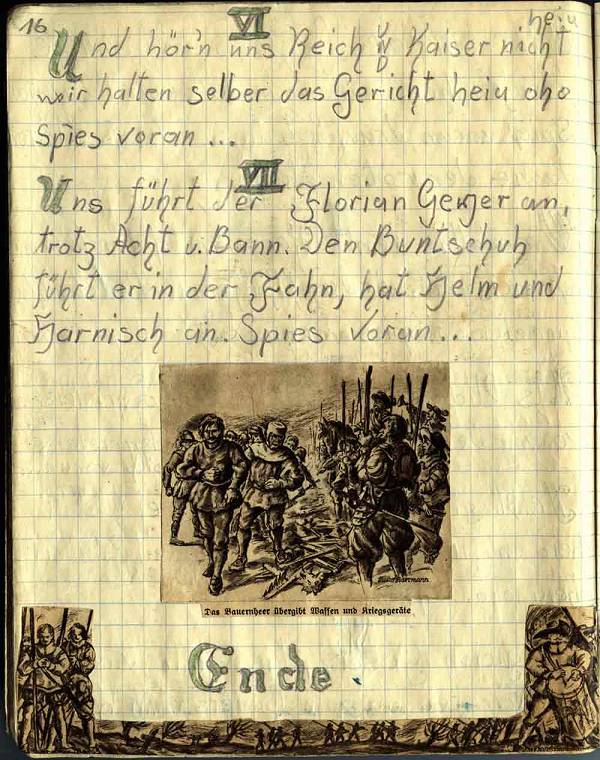 16
heiu
VI
Und hör'n uns Reich UND Kaiser nicht
wir halten selber das Gericht heiu oho
Spies voran ...
VII
Uns führt der Florian Geyer an,
trotz Acht u. Bann. Den Buntschuh
führt er in der Fahn, hat Helm und
Harnisch an. Spies Voran...
Das Bauernheer übergibt Waffen und Kriegsgeräte
Ende.